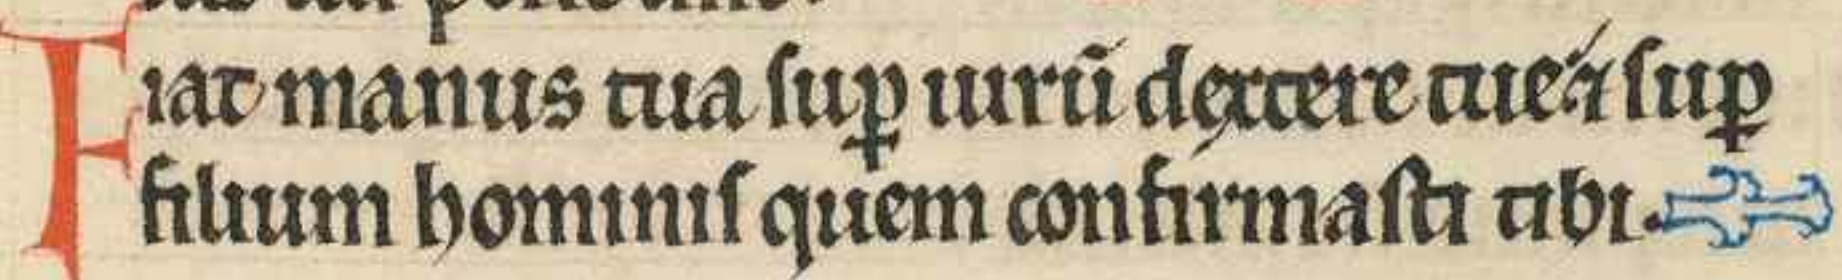 Fiat manus tua ſuꝑ uirū dextere tue ⁊ ſuꝑ
filium hominiſ quem confirmaſti tibi.